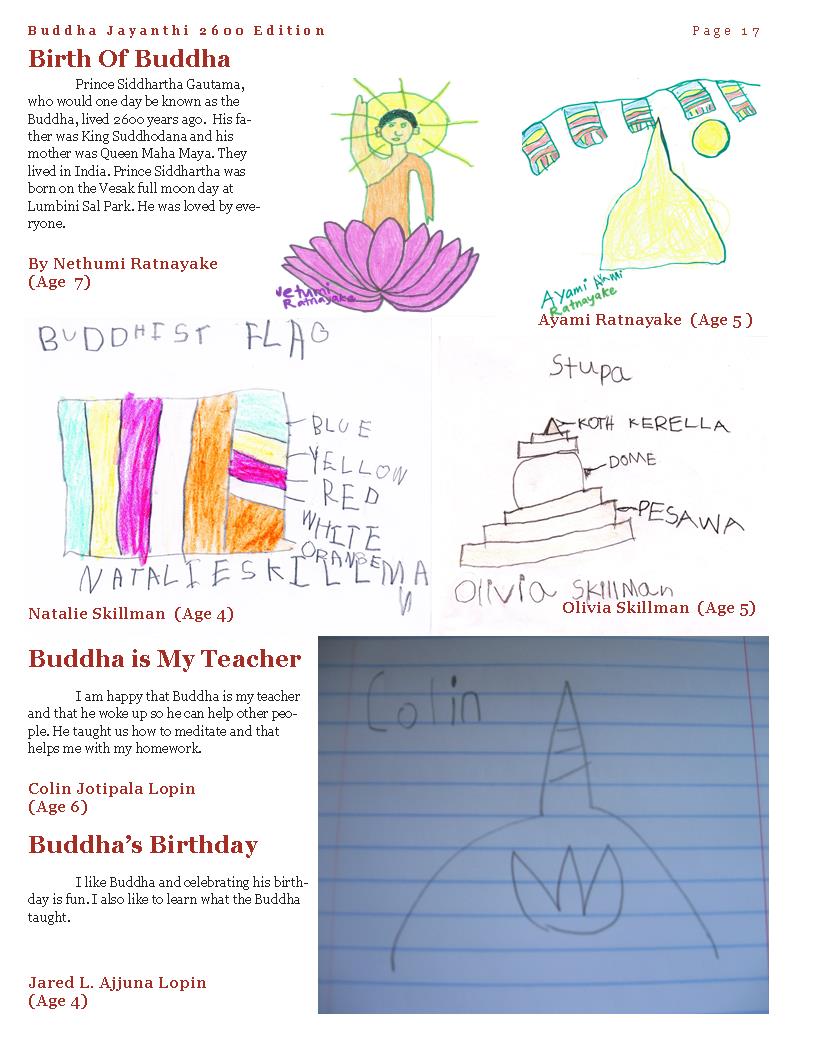 Buddha Jayanthi 2600 Edition
Page 17
Birth Of Buddha
Prince Siddhartha Gautama,
who would one day be known as the
Buddha, lived 2600 years ago. His fa-
ther was King Suddhodana and his
mother was Queen Maha Maya. They
lived in India. Prince Siddhartha was
born on the Vesak full moon day at
Lumbini Sal Park. He was loved by eve-
ryone.
By Nethumi Ratnayake
(Age 7)
Netumi
Ratnayake
Ayami Ayami
Ratnayake
Ayami Ratnayake (Age 5)
BUDDHIST FLAG
BLUE
YELLOW
RED
WHITE
ORANGE
NATALIE SKILLMAN
Natalie Skillman (Age 4)
Stupa
KOTH KERELLA
DOME
PESAWA
Olivia Skillman
Olivia Skillman (Age 5)
Buddha is My Teacher
I am happy that Buddha is my teacher
and that he woke up so he can help other peo-
ple. He taught us how to meditate and that
helps me with my homework.
Colin Jotipala Lopin
(Age 6)
Colin
Buddha's Birthday
I like Buddha and celebrating his birth-
day is fun. I also like to learn what the Buddha
taught.
Jared L. Ajjuna Lopin
(Age 4)